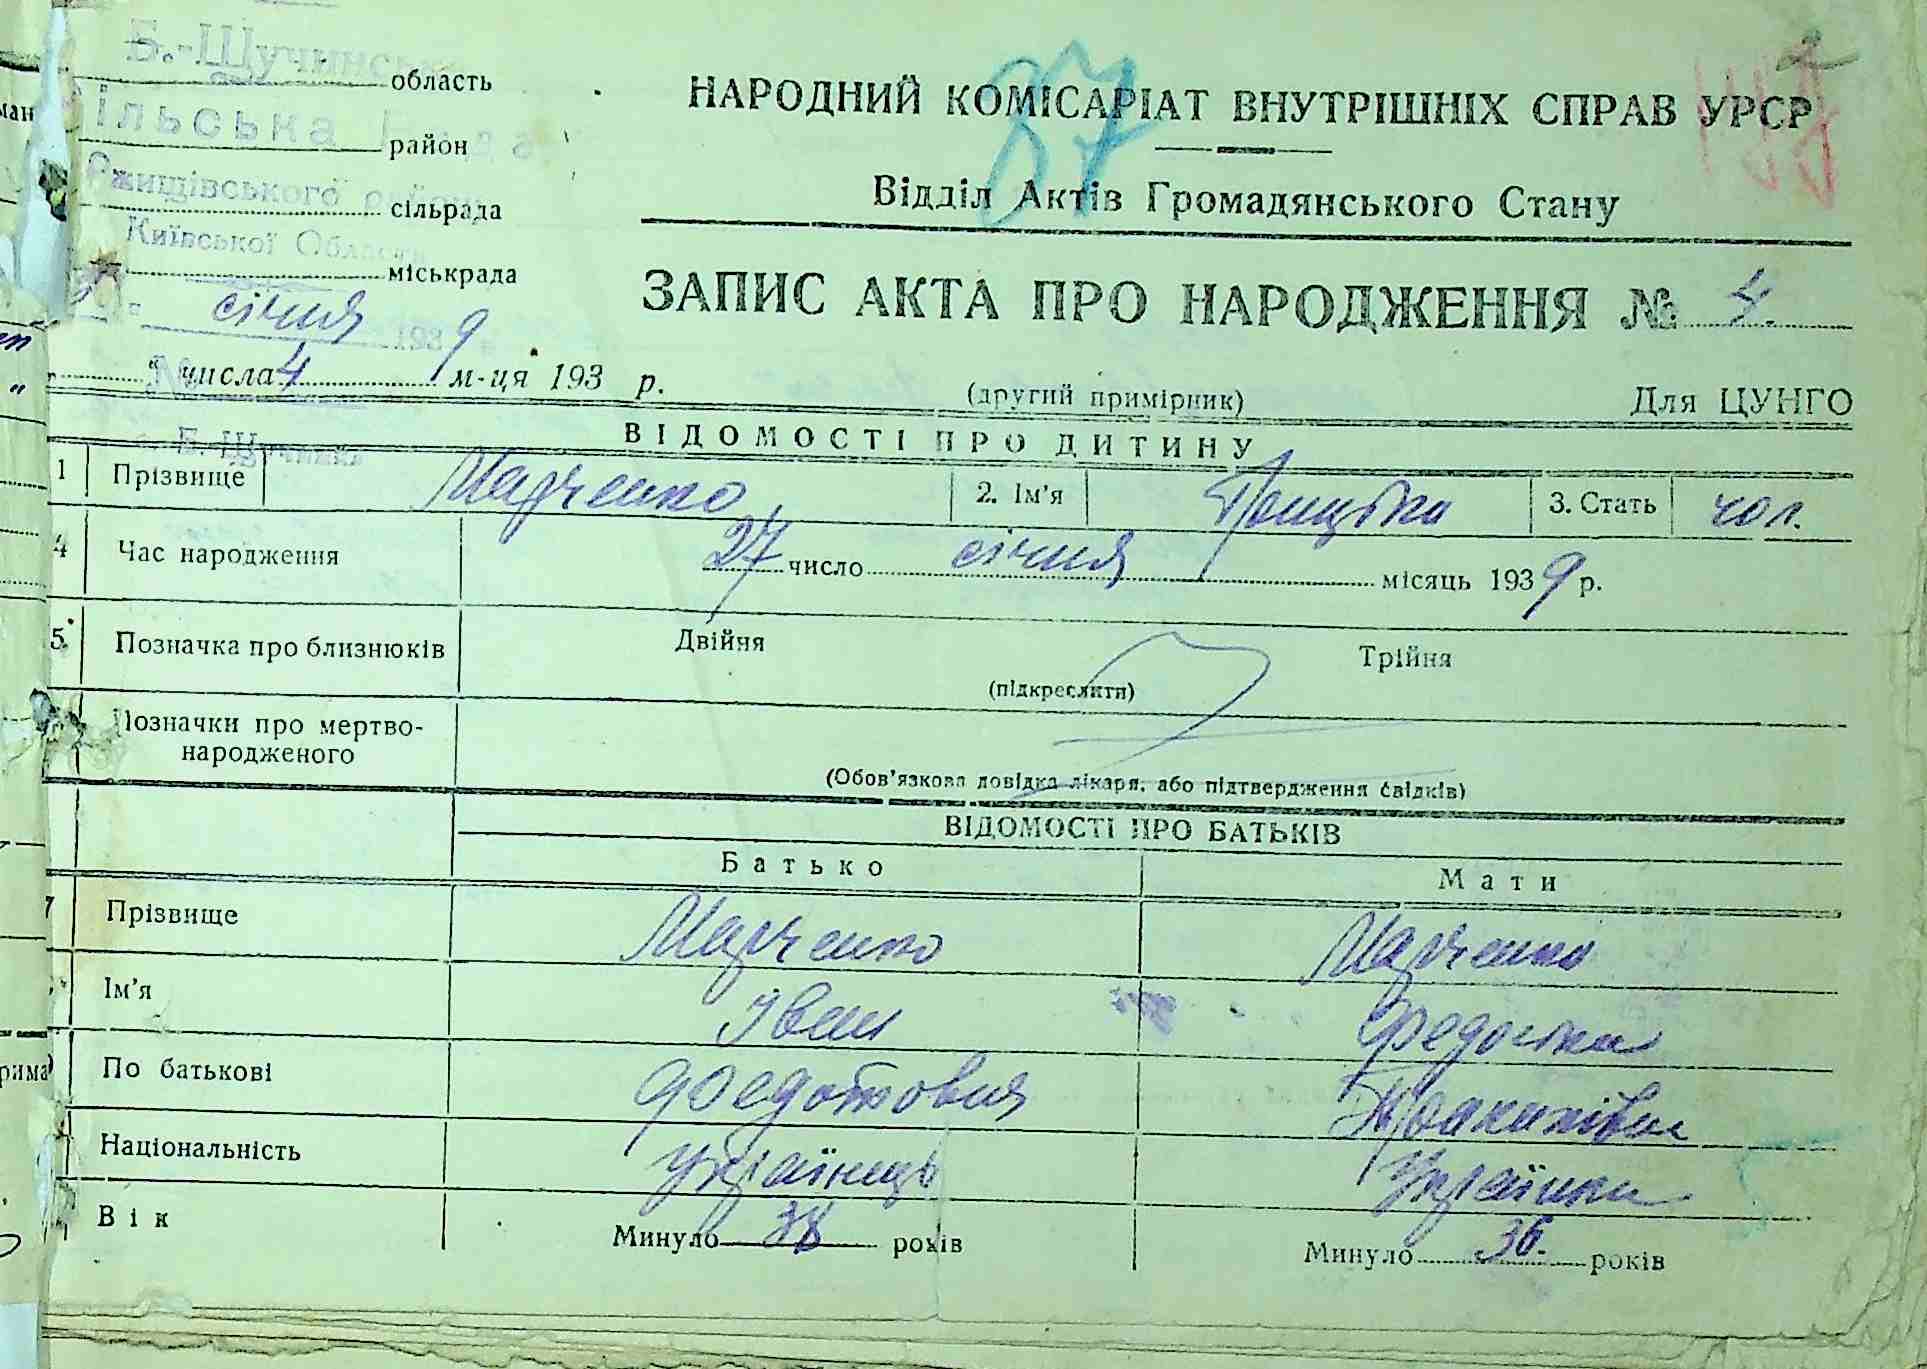 Б.-Щучинська
область
2
Сільська Рада
район
87
НАРОДНИЙ КОМІСАРІАТ ВНУТРІШНІХ СПРАВ УРСР
Ржищівського району
сільрада
Відділ Актів Громадянського Стану
Київської Области
міськрада
січня 1939
ЗАПИС АКТА ПРО НАРОДЖЕННЯ № 4.
" числа 4 м-ця 193 р.
(другий примірник)
Для ЦУНГО
ВІДОМОСТІ ПРО ДИТИНУ
1 Прізвище Марченко 2. Ім'я 3. Стать чол.
4 Час народження 27 число січня місяць 1939 р.
5. Позначка про близнюків Двійня Трійня
(підкреслити)
Позначки про мертво-
народженого
(Обов'язкова довідка лікаря, або підтвердження свідків)
ВІДОМОСТІ ПРО БАТЬКІВ
Батько Мати
7 Прізвище Марченко Марченко
Ім'я Іван Федоська
По батькові Федотович
Національність українець Українка
Вік Минуло 38 років Минуло 36. років